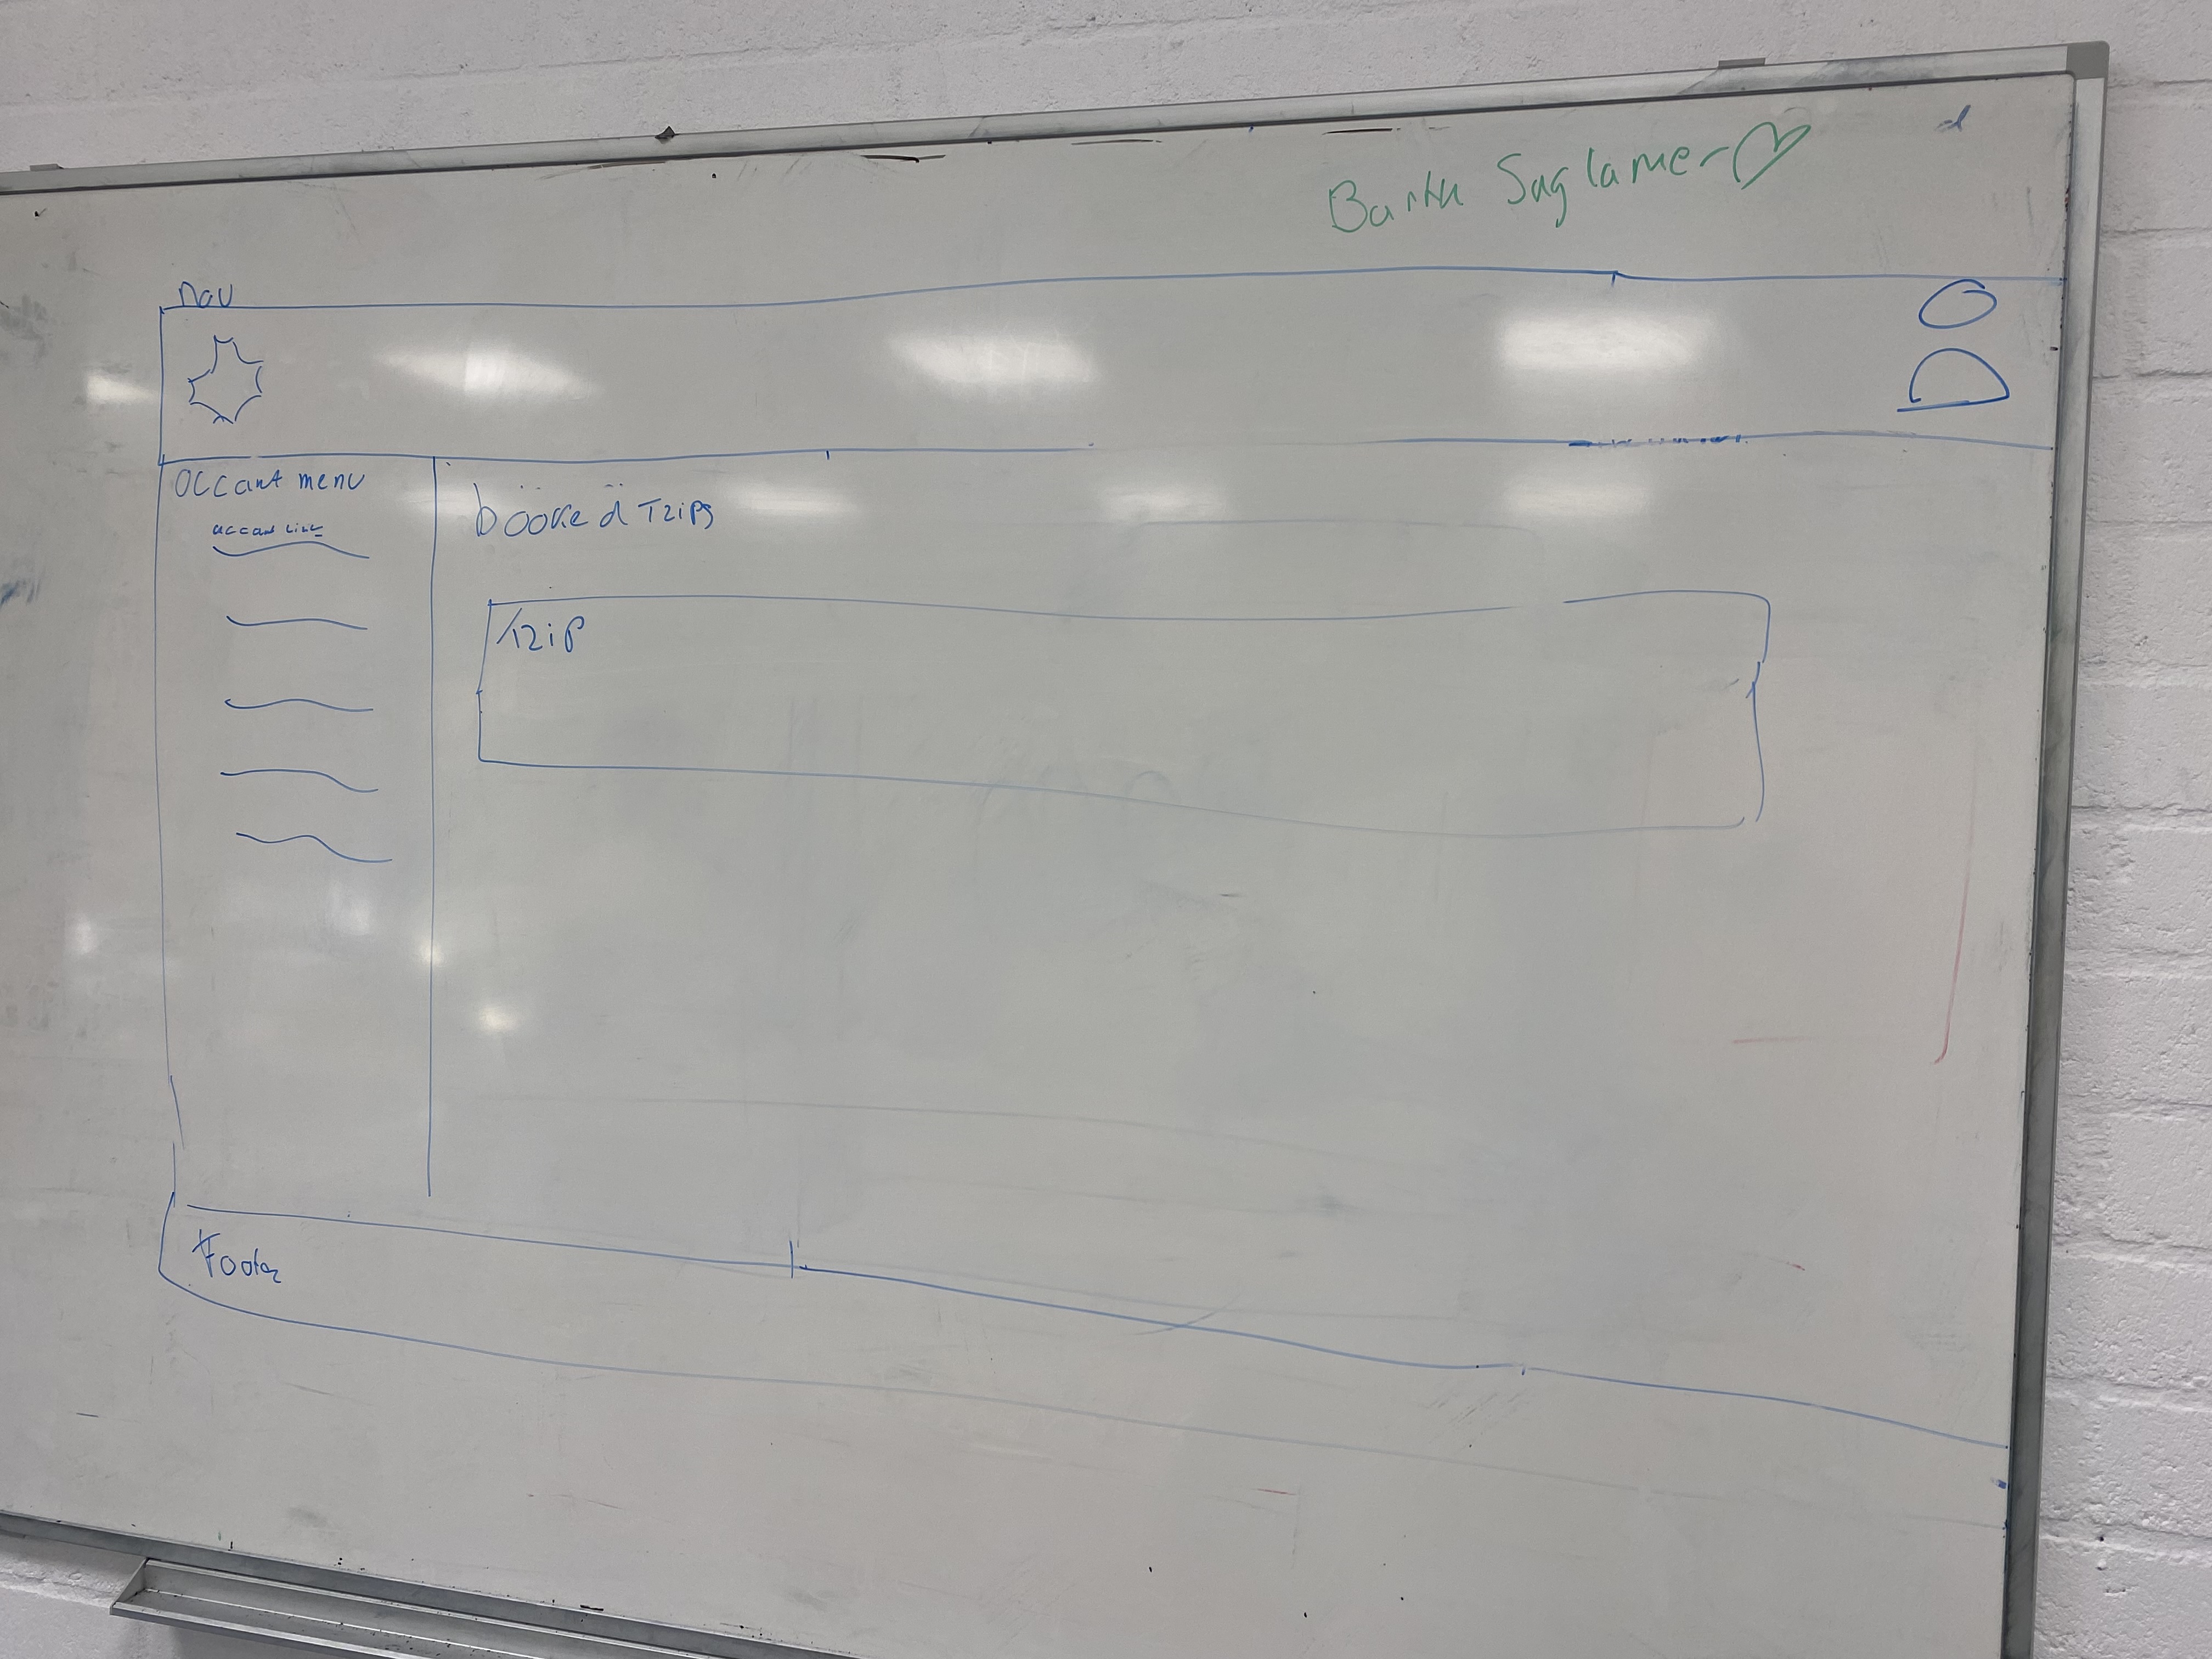 Saglamer
nav
accant menu
accant link
booked Trips
Trip
Footer